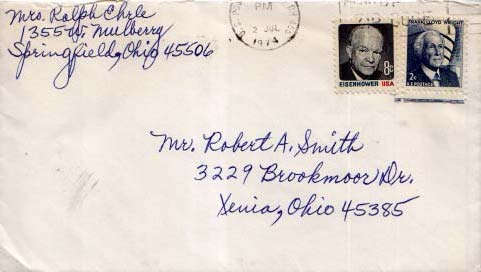 Mrs. Ralph Ehrle
1355 W. Mulberry
Springfield, Ohio 45506
PM
2 JUL
1974
EISENHOWER USA
8c
FRANK LLOYD WRIGHT
2c
U.S. POSTAGE
Mr. Robert A. Smith
3229 Brookmoor Dr.
Xenia, Ohio 45385